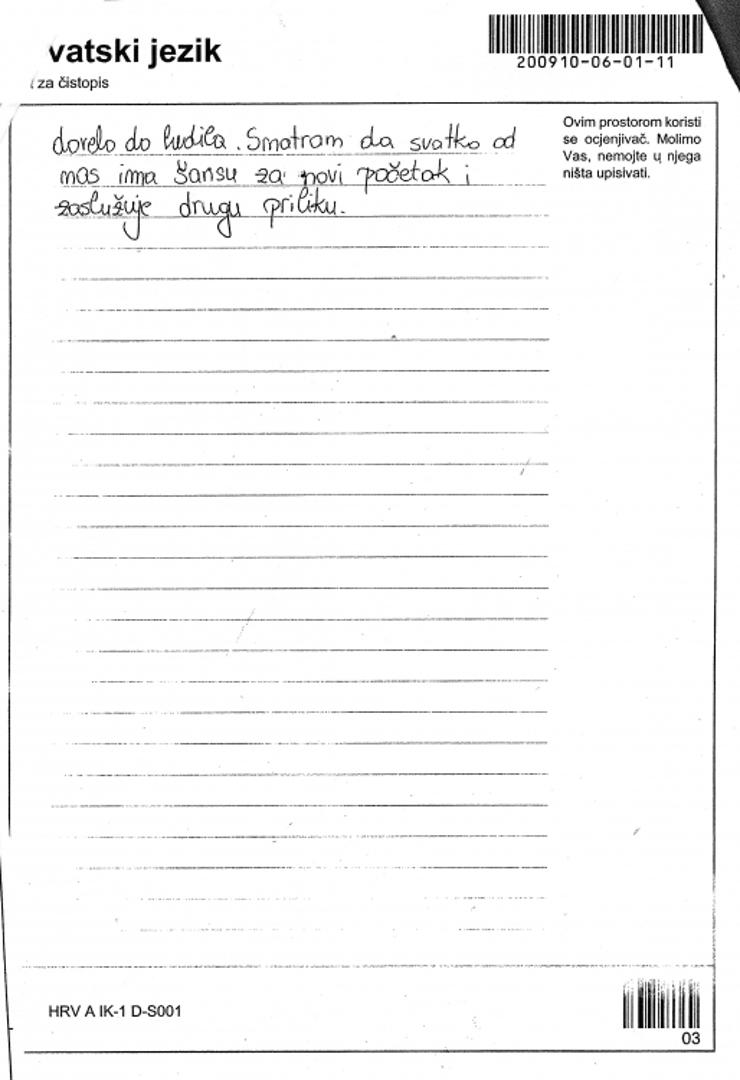 vatski jezik
za čistopis
200910-06-01-11
Ovim prostorom koristi
se ocjenjivač. Molimo
Vas, nemojte u njega
ništa upisivati.
dovelo do ludila. Smatram da svatko od
nas ima šansu za novi početak i
zaslužuje drugu priliku.
HRV A IK-1 D-S001
03